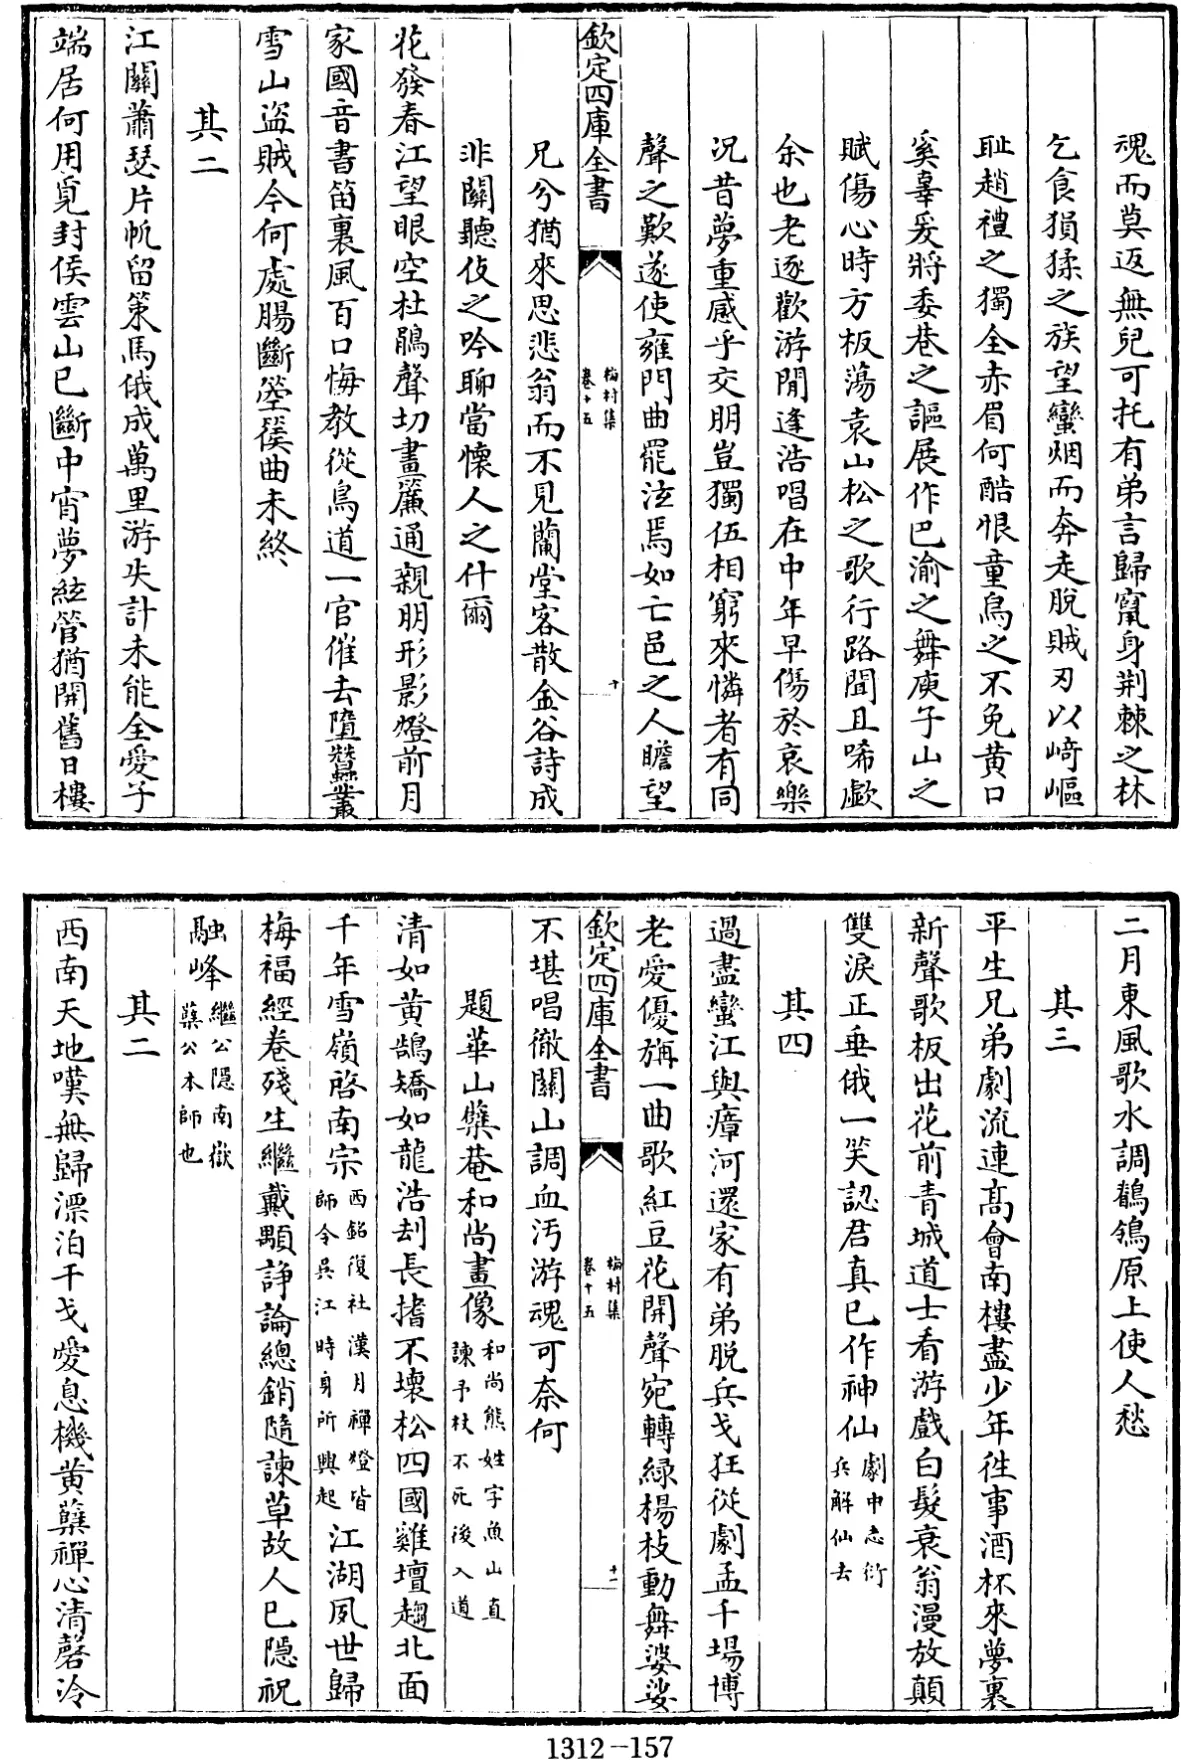 魂而莫返無兒可托有弟言歸竄身荆棘之林
乞食猺之族望蠻烟而奔走脫賊刃以崎嶇
耻趙禮之獨全赤眉何酷恨童烏之不免黄口
奚辜爰將委巷之謳展作巴渝之舞庾子山之
賦傷心時方板蕩袁山松之歌行路聞且唏歔
余也老逐歡游閒逢浩唱在中年早傷於哀樂
况昔夢重感乎交朋豈獨伍相窮來憐者有同
聲之歎遂使雍門曲罷泫焉如亡邑之人瞻望
欽定四庫全書
梅村集
卷十五
十
兄兮猶來思悲翁而不見蘭堂客散金谷詩成
非關聽伎之吟聊當懷人之什爾
花發春江望眼空杜鵑聲切畫簾通親朋形影燈前月
家國音書笛裏風百口悔教從鳥道一官催去墮蠶叢
雪山盗賊今何處腸斷箜篌曲未終
其二
江關蕭瑟片帆留策馬俄成萬里游失計未能全愛子
端居何用覓封侯雲山已斷中宵夢絃管猶開舊日樓
二月東風歌水調鶺鴒原上使人愁
其三
平生兄弟劇流連髙會南樓盡少年徃事酒杯來夢裏
新聲歌板出花前青城道士看游戲白髮衰翁漫放顛
雙淚正垂俄一笑認君真已作神仙劇中志衍
兵解仙去
其四
過盡蠻江與瘴河還家有弟脱兵戈狂從劇孟千塲博
老愛優旃一曲歌紅豆花開聲宛轉緑楊枝動舞婆娑
欽定四庫全書
梅村集
卷十五
十一
不堪唱徹關山調血汚游魂可奈何
題華山蘗菴和尚畫像和尚熊姓字魚山直
諫予杖不死後入道
清如黄鵠矯如龍浩刦長撎不壞松四國雞壇趨北面
千年雪嶺啓南宗西銘復社漢月禪燈皆
師令吳江時身所興起江湖夙世歸
梅福經卷殘生繼戴顒諍論總銷隨諫草故人已隐祝
融峰繼公隱南嶽
蘗公本師也
其二
西南天地嘆無歸漂泊干戈愛息機黄蘗禪心清磬冷